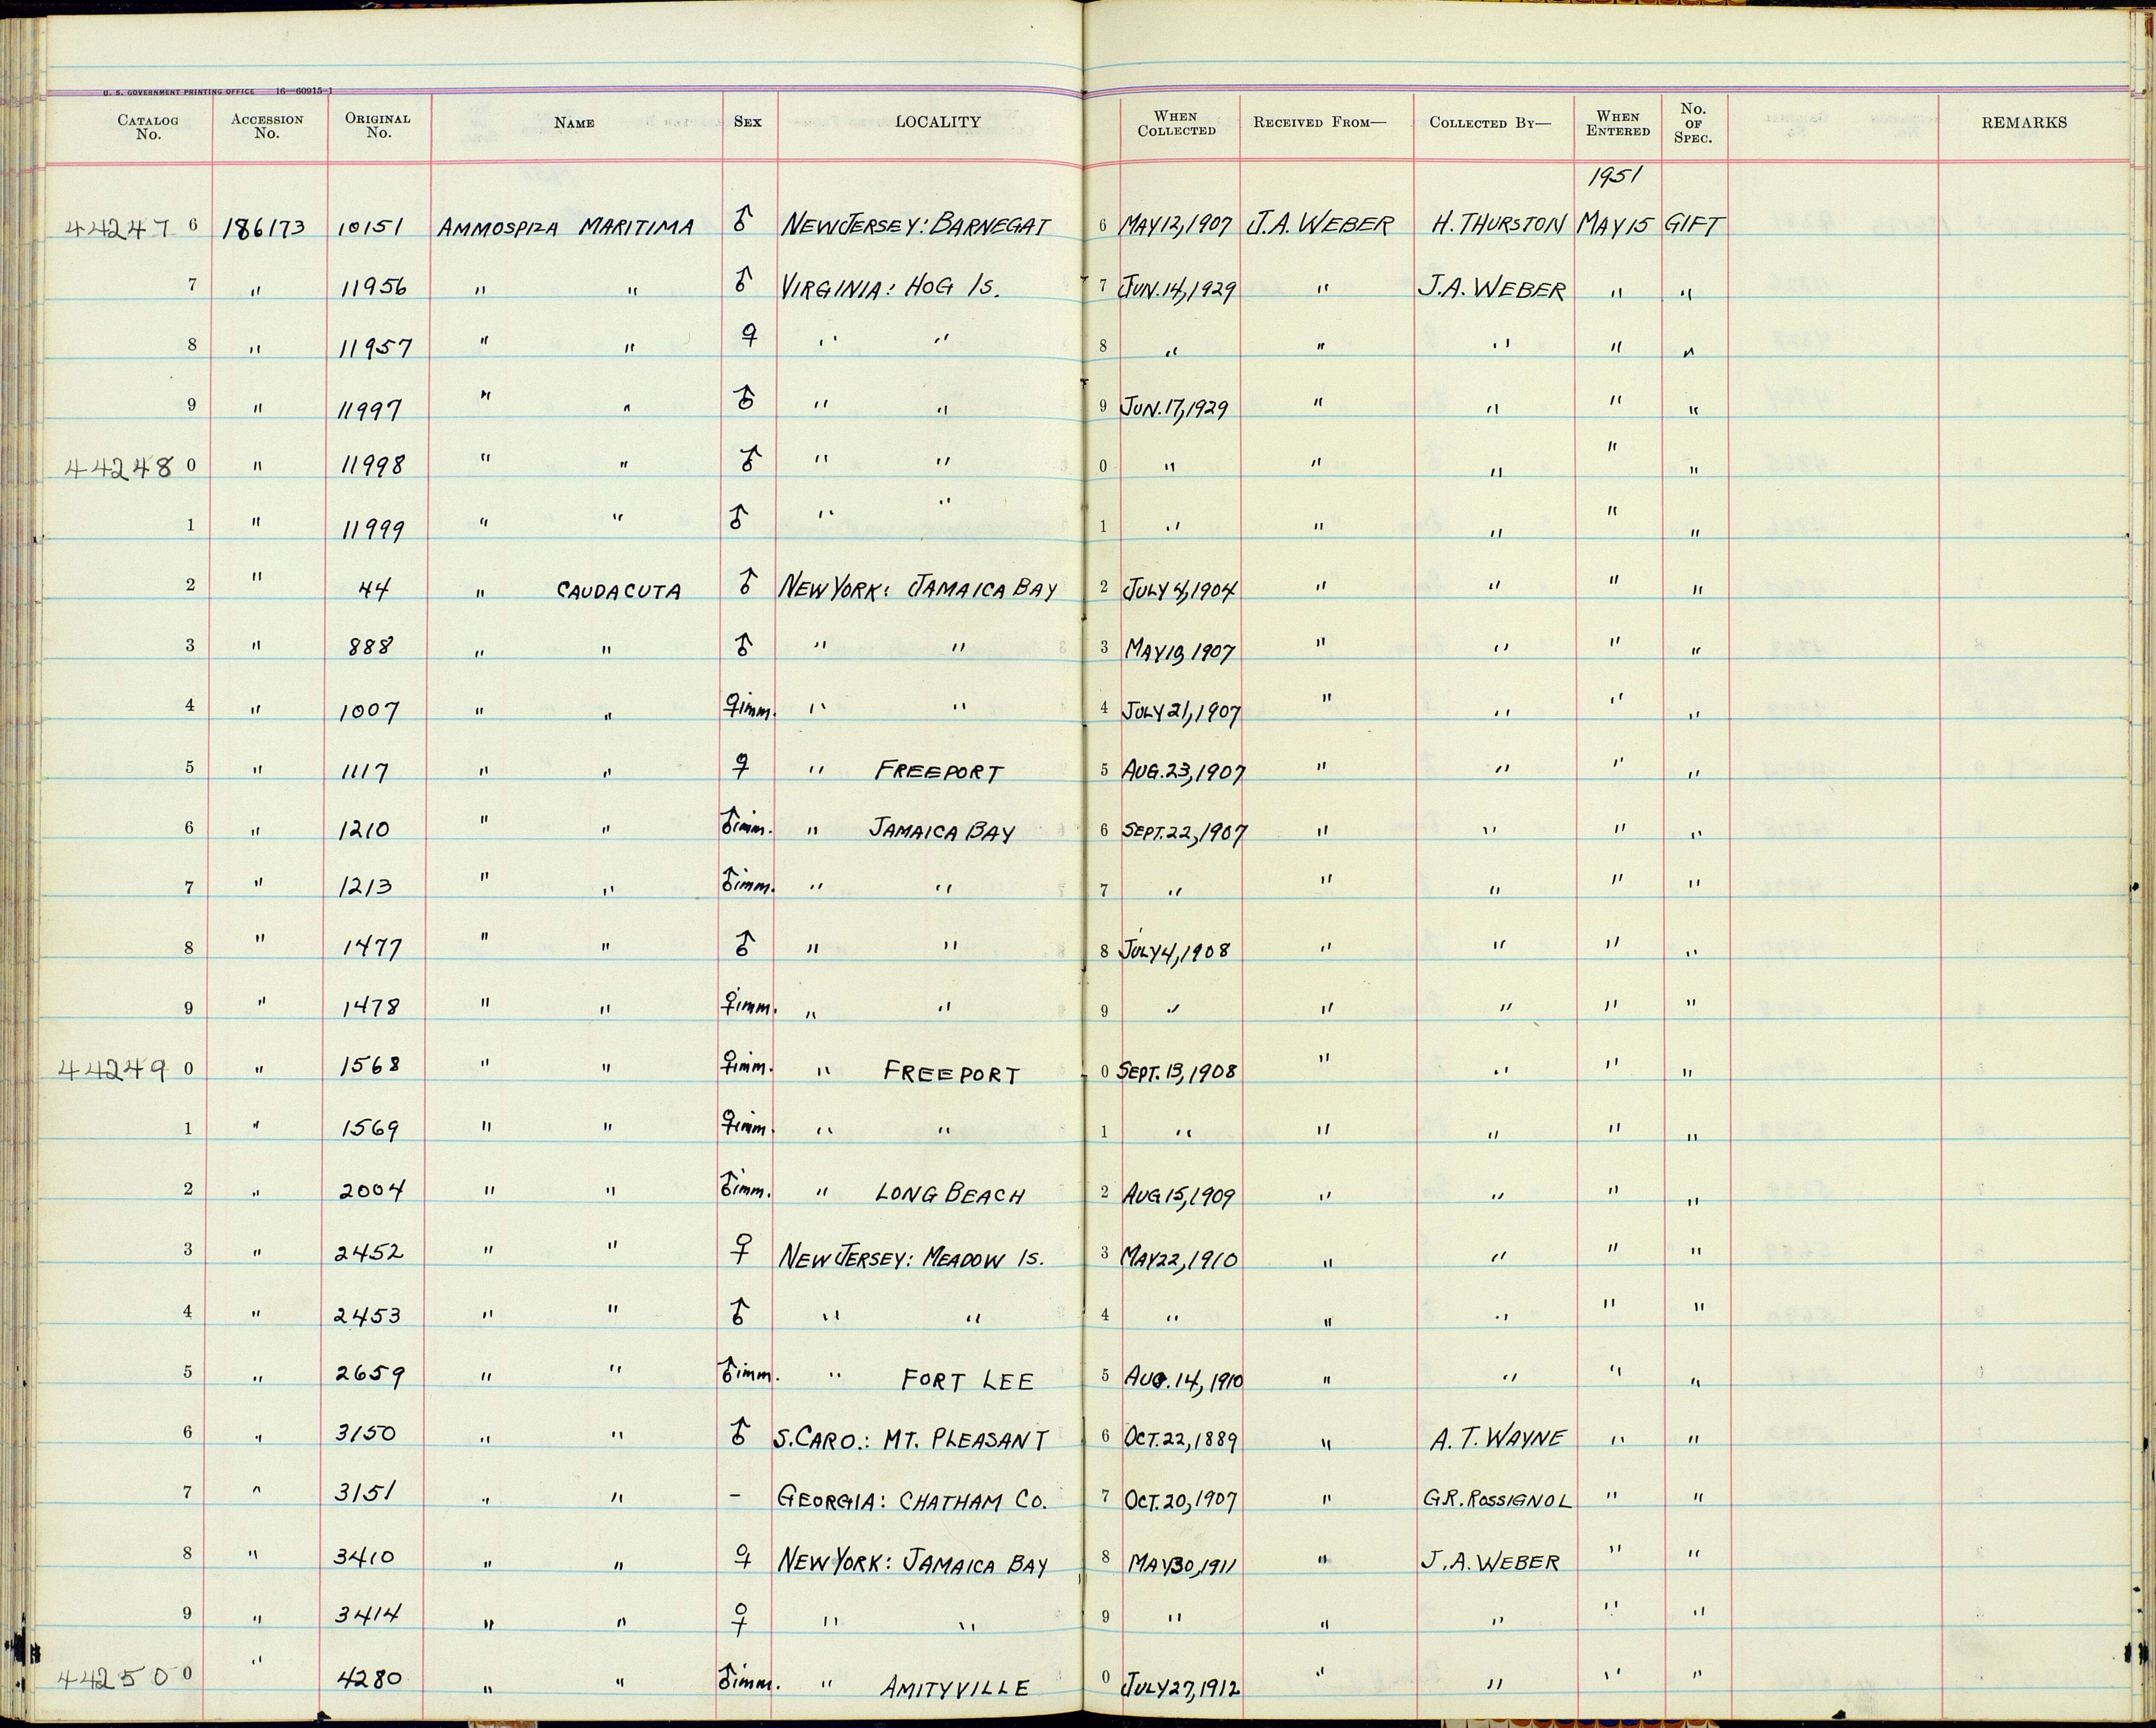 U. S. GOVERNMENT PRINTING OFFICE 16—60915-1
CATALOG No. ACCESSION No. ORIGINAL No. NAME SEX LOCALITY WHEN COLLECTED RECEIVED FROM— COLLECTED BY— WHEN ENTERED No. OF SPEC. REMARKS
1951
44247 6 186173 10151 AMMOSPIZA MARITIMA ♂ NEW JERSEY: BARNEGAT 6 MAY 12, 1907 J.A. WEBER H. THURSTON MAY 15 GIFT
7 " 11956 " " ♂ VIRGINIA: HOG IS. 7 JUN. 14, 1929 " J.A. WEBER " "
8 " 11957 " " ♀ " " 8 " " " " "
9 " 11997 " " ♂ " " 9 JUN. 17, 1929 " " " "
44248 0 " 11998 " " ♂ " " 0 " " " " "
1 " 11999 " " ♂ " " 1 " " " " "
2 " 44 " CAUDACUTA ♂ NEW YORK: JAMAICA BAY 2 JULY 4, 1904 " " " "
3 " 888 " " ♂ " " 3 MAY 19 1907 " " " "
4 " 1007 " " ♀ imm. " " 4 JULY 21, 1907 " " " "
5 " 1117 " " ♀ " FREEPORT 5 AUG. 23, 1907 " " " "
6 " 1210 " " ♂ imm. " JAMAICA BAY 6 SEPT. 22, 1907 " " " "
7 " 1213 " " ♂ imm. " " 7 " " " " "
8 " 1477 " " ♂ " " 8 JULY 4, 1908 " " " "
9 " 1478 " " ♀ imm. " " 9 " " " " "
44249 0 " 1568 " " ♀ imm. " FREEPORT 0 SEPT. 13, 1908 " " " "
1 " 1569 " " ♀ imm. " " 1 " " " " "
2 " 2004 " " ♂ imm. " LONG BEACH 2 AUG 15, 1909 " " " "
3 " 2452 " " ♀ NEW JERSEY: MEADOW IS. 3 MAY 22, 1910 " " " "
4 " 2453 " " ♂ " " 4 " " " " "
5 " 2659 " " ♂ imm. " FORT LEE 5 AUG. 14, 1910 " " " "
6 " 3150 " " ♂ S. CARO.: MT. PLEASANT 6 OCT. 22, 1889 " A. T. WAYNE " "
7 " 3151 " " – GEORGIA: CHATHAM CO. 7 OCT. 20, 1907 " G.R. ROSSIGNOL " "
8 " 3410 " " ♀ NEW YORK: JAMAICA BAY 8 MAY 30, 1911 " J.A. WEBER " "
9 " 3414 " " ♀ " " 9 " " " " "
44250 0 " 4280 " " ♂ imm. " AMITYVILLE 0 JULY 27, 1912 " " " "